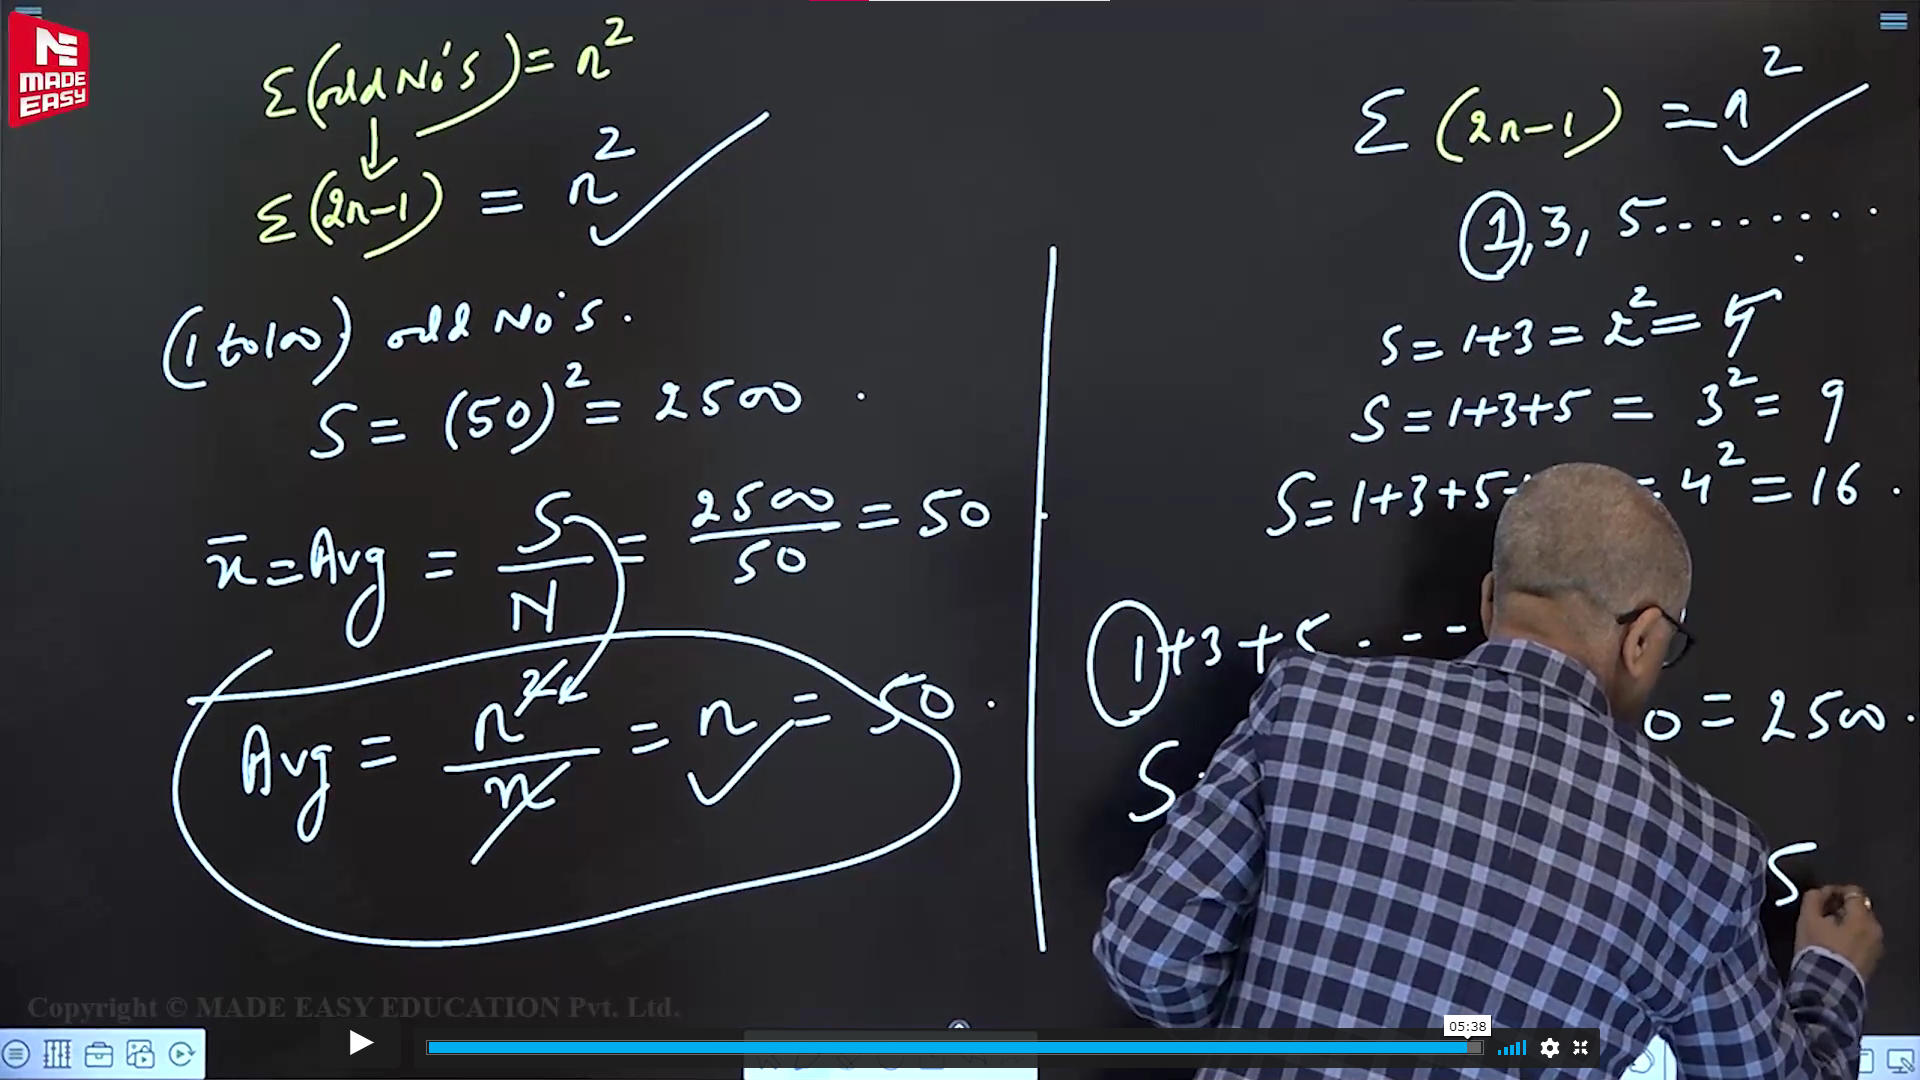 MADE
EASY
Σ(odd No's) = n²
Σ(2n-1) = n²
(1 to 100) odd No's.
S = (50)² = 2500
x̄ = Avg = S/N = 2500/50 = 50
Avg = n²/n = n = 50.
Σ (2n-1) = n²
1, 3, 5.......
S = 1+3 = 2² = 4
S = 1+3+5 = 3² = 9
S = 1+3+5 = 4² = 16.
1+3+5 . - - -
0 = 2500.
S
S
Copyright © MADE EASY EDUCATION Pvt. Ltd.
05:38